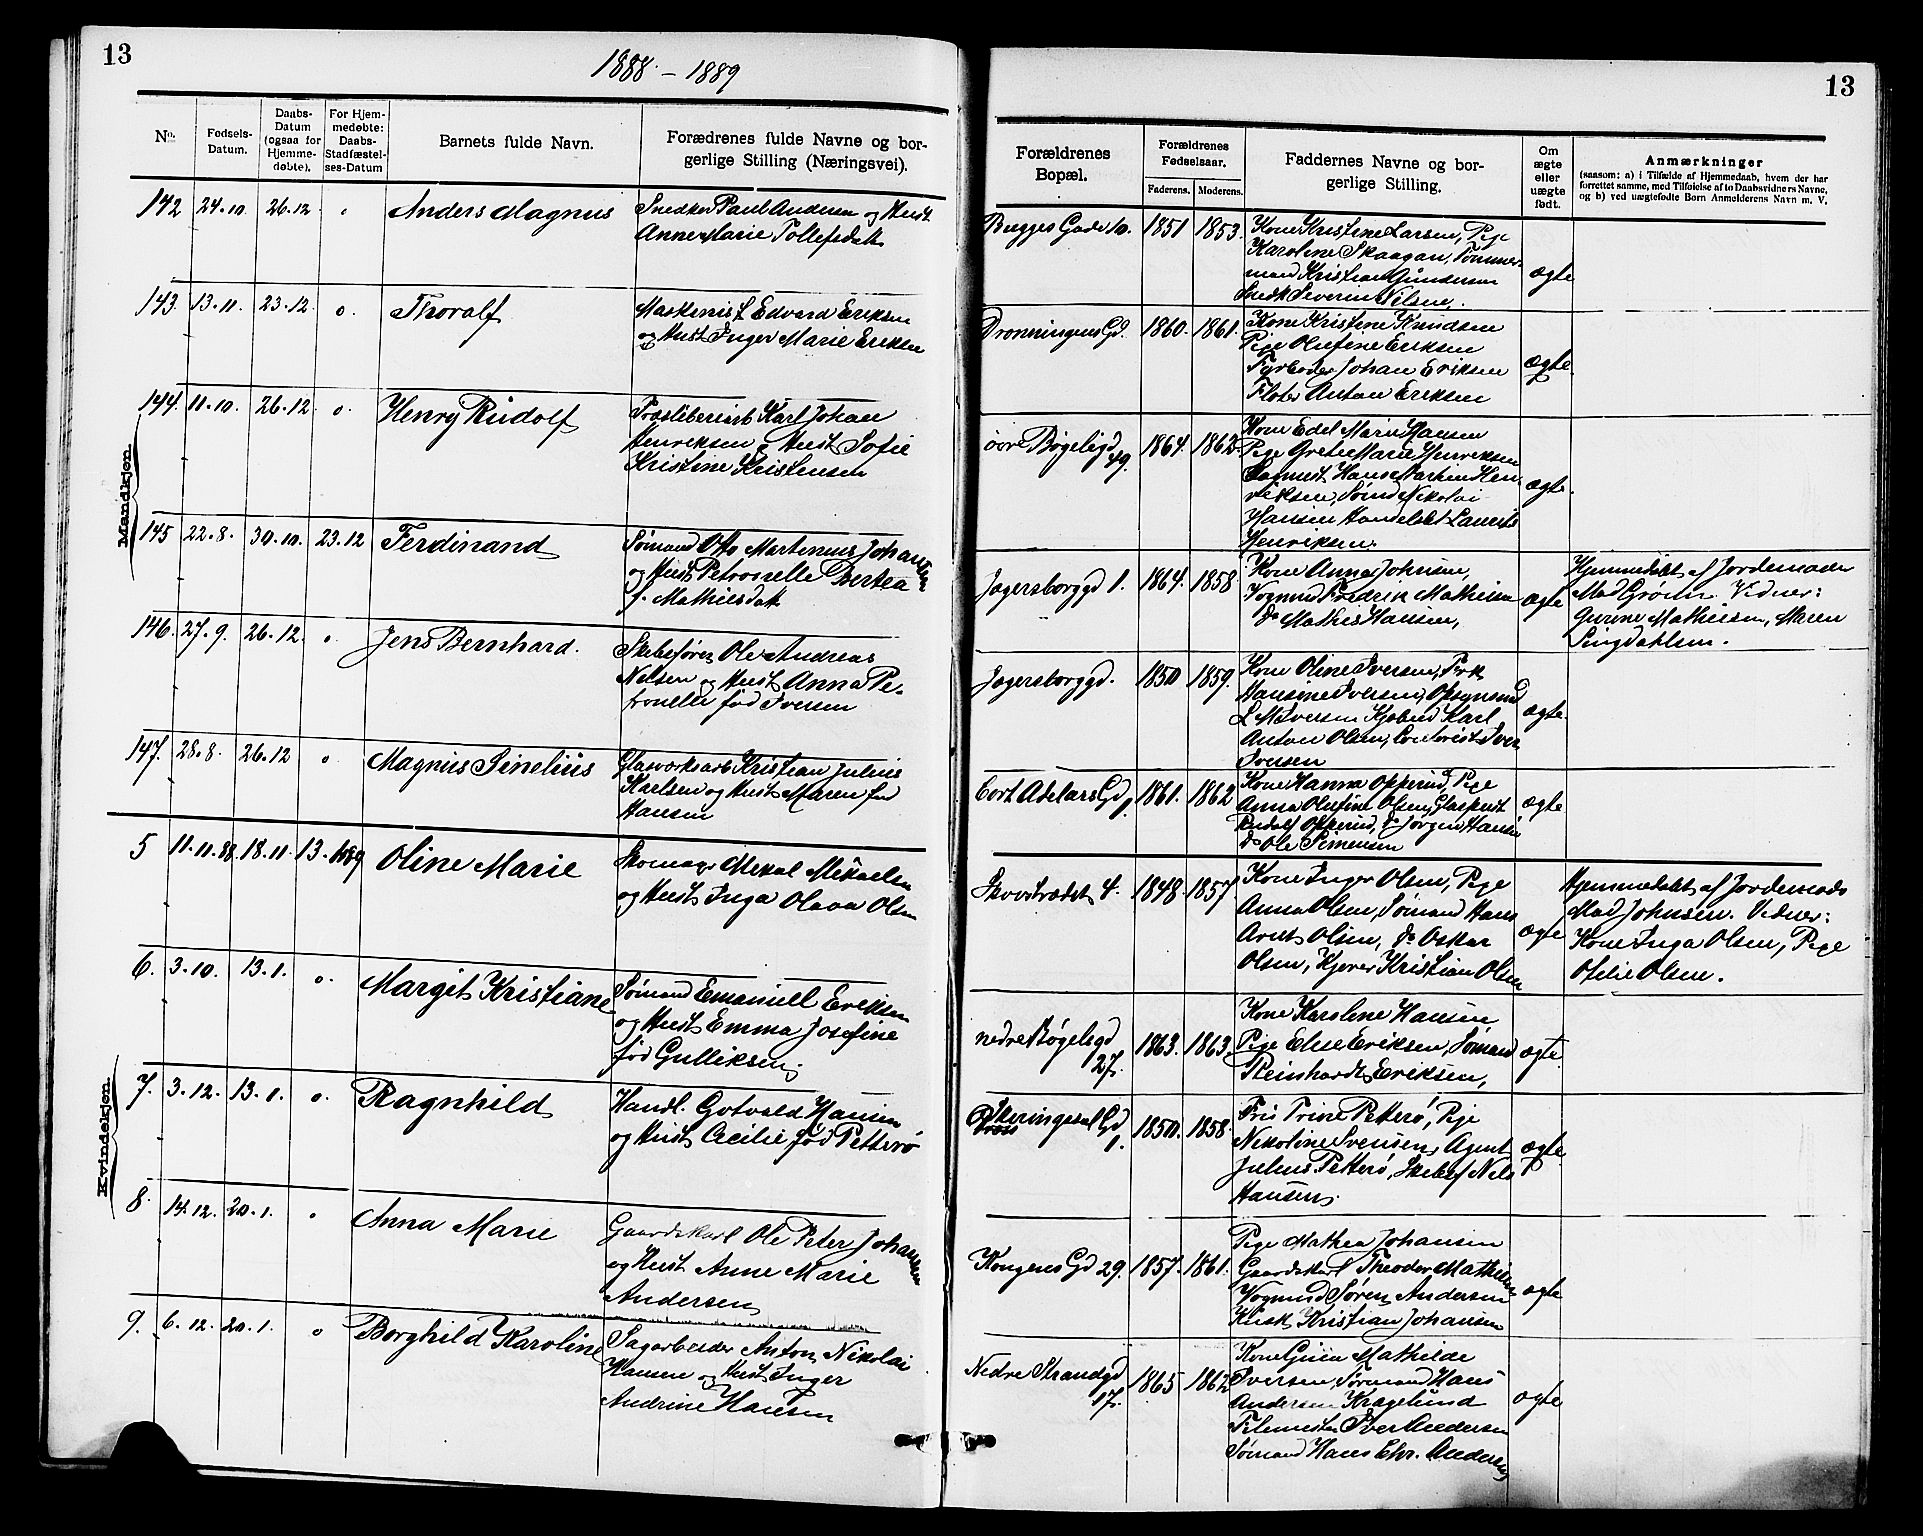 13
1888 - 1889
No.
Fødsels-
Datum.
Daabs-
Datum
(ogsaa for
Hjemme-
døbte).
For Hjem-
medøbte:
Daabs-
Stadfæstel-
ses-Datum
Barnets fulde Navn.
Forædrenes fulde Navne og bor-
gerlige Stilling (Næringsvei).
Mandkjøn.
142 24.10. 26.12 " Anders Magnus
Snedker Paul Andersen og Hust.
Anne Marie Tollefsdatt
143. 13.11. 23.12. o. Thoralf
Maskinist Edvard Eriksen
og Hust Inger Marie Eriksen
144. 11.10. 26.12. o. Henry Rudolf
Karl Johan
Henriksen og Hust Sofie
Kristine Kristensen
145 22.8. 30.10. 23.12 Ferdinand
Sømand Otto Martenius Johansen
og Hust Petronelle Bertea
f. Mathisdatt
146. 27.9. 26.12. o. Jens Bernhard.
Skibsfører Ole Andreas
Nelsen og Hust Anna Pe-
tronelle fød Iversen
147. 28.8. 26.12 o Magnus Sinelius
Glasværksarb Kristian Julius
Karlsen og Hust Maren fød
Hansen
Kvindekjøn.
5 11.11.88. 18.11. 13. 1889 Oline Marie
Skomager Mikal Mikaelsen
og Hust Inga Olava Olsen
6. 3.10. 13.1. o. Margit Kristiane
Sømand Emanuel Eriksen
og Hust Emma Josefine
fød Gulliksen.
7. 3.12. 13.1. o. Ragnhild
Handl. Gotvald Hansen
og Hust Cecilie fød Petterø
8. 14.12. 20.1. " Anna Marie
Gaardskarl Ole Peter Johansen
og Hust. Anne Marie
Andersen
9. 6.12. 20.1. o Borghild Karoline
Sagarbeider Anton Nikolai
Hansen og Hust Inger
Andrine Hansen
13
Forældrenes
Bopæl.
Forældrenes
Fødselsaar.
Faderens. Moderens.
Faddernes Navne og bor-
gerlige Stilling.
Om
ægte
eller
uægte
født.
Anmærkninger
(saasom: a) i Tilfælde af Hjemmedaab, hvem der har
forrettet samme, med Tilføielse af to Daabsvidners Navne,
og b) ved uægtefødte Børn Anmelderens Navn m. V.
Bugges Gade 10. 1851 1853. Kone Kristine Larsen, Pige
Karoline Skaagan, Tømmer-
mand Kristian Gundersen
Snedk Severin Nilsen. ægte
Dronningens Gd. 1860. 1861. Kone Kristine Knudsen
Pige Oliefine Eriksen
Fyrbøder Johan Eriksen
Anton Eriksen ægte.
øvre Bøgeligd 49. 1864. 1862. Kone Edel Marie Hansen
Pige Grete Marie Henriksen
Hans Martin Hen
riksen, Sømd Nikolai
Hansen Laurits
Henriksen. ægte.
Jegersborggd 1. 1864. 1858 Kone Anna Johnsen,
Vognmd Fredrik Mathisen
do Mathis Hansen, ægte
Hjemmedøbt af Jordemoder
Mad Grønn. Vidner:
Gurine Mathisen, Maren
Jegersborggd. 1850 1859. Kone Oline Iversen, Pek
Hansine Iversen, Opsynsmd
L M Iversen Kjøbmd Karl
Anton Olsen, Iver
Iversen ægte.
Cort Adelars Gd 1. 1861. 1862 Kone Hanna Opperud, Pige
Anna Oliefine Olsen,
Rudolf Opperud, do Jørgen Hansen
do Ole Simensen ægte
4. 1848. 1857. Kone Inger Olsen, Pige
Anna Olsen, Sømand Hans
Arnt Olsen, do Oskar
Olsen, Kristian Olsen ægte
Hjemmedøbt af Jordemod
Mad Johnsen. Vidner:
Kone Inga Olsen, Pige
Ofelie Olsen.
nedre Bøgeligd 27. 1863. 1863. Kone Karoline Hansen
Pige Elise Eriksen, Sømand
Reinhardt Eriksen, ægte.
Skiringssal Gd 1. 1850. 1858. Frk Trine Petterø, Pige
Nikoline Svensen, Agent
Julius Petterø, Skibsf Nils
Hansen. ægte
Kongens Gd 29. 1857. 1861. Pige Mathea Johansen
Gaardskarl Theodor Mathisen
Vognmd Søren Andersen
Kristian Johansen ægte
Nedre Strandgd 17. 1865 1862 Kone Mathilde
Iversen, Sømand Hans
Andersen Kragelund
Iver Andersen
Sømand Hans Chr. Andersen ægte